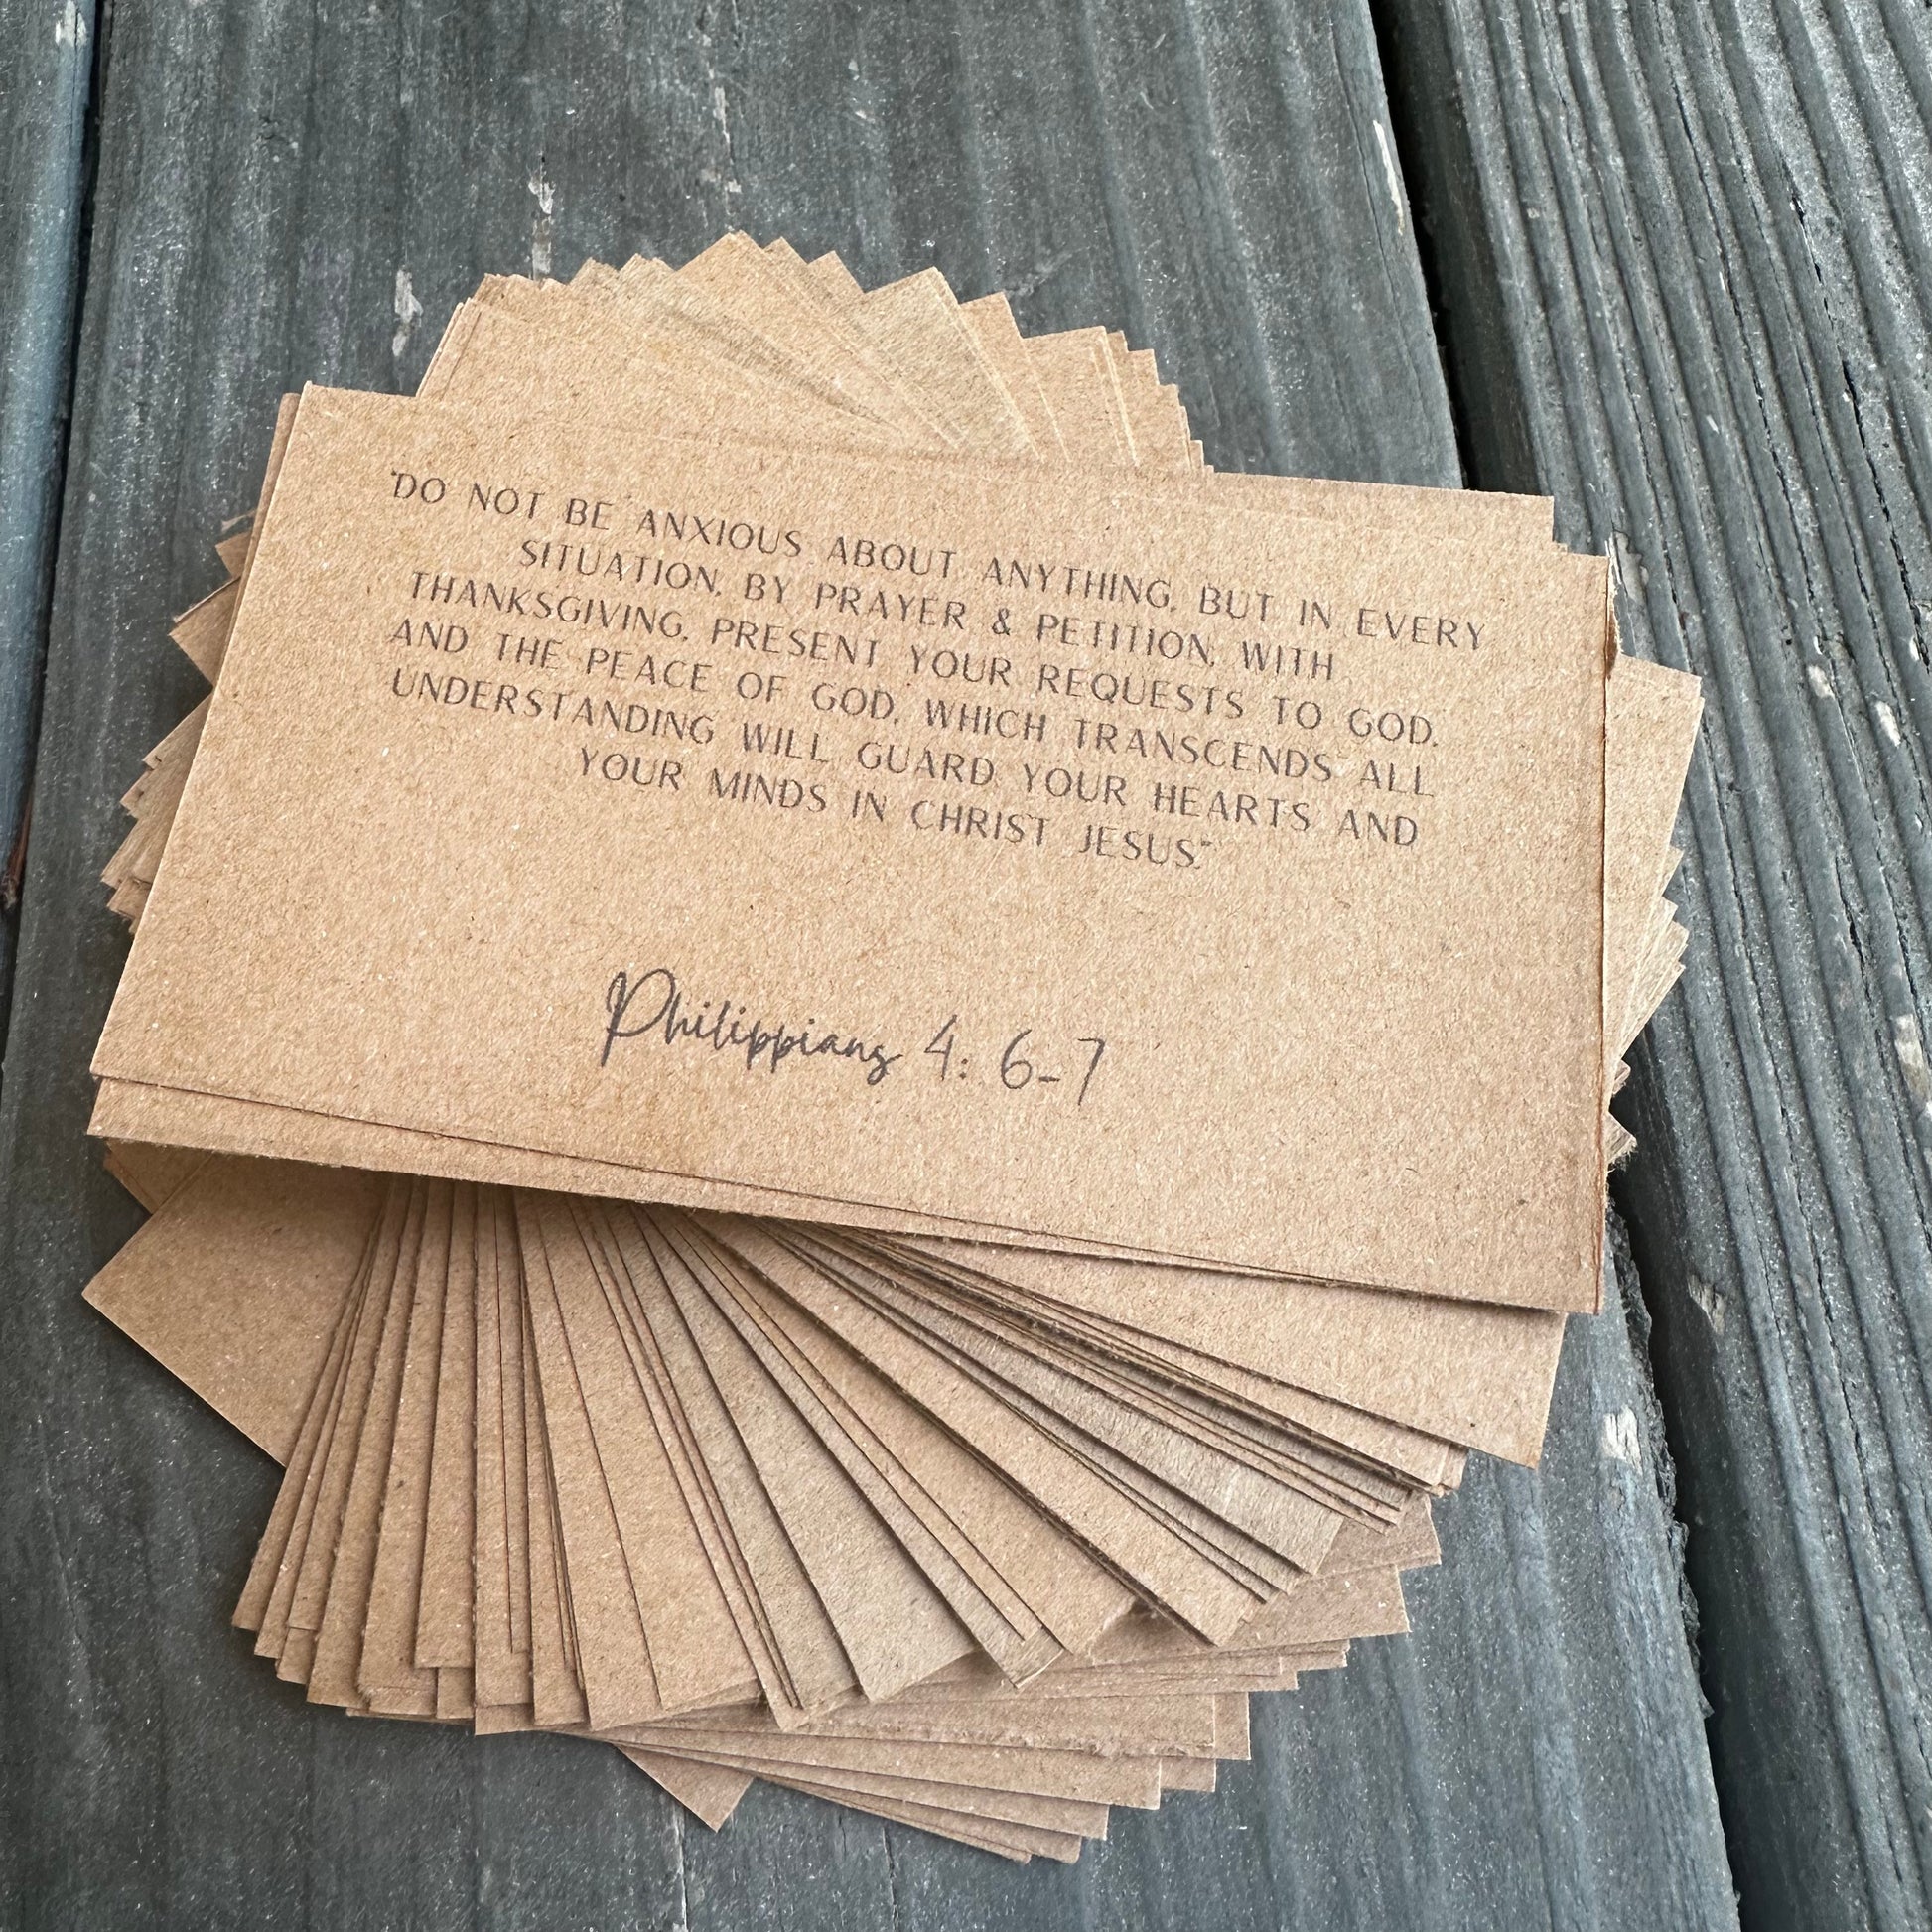 "DO NOT BE ANXIOUS ABOUT ANYTHING, BUT IN EVERY
SITUATION, BY PRAYER & PETITION, WITH
THANKSGIVING, PRESENT YOUR REQUESTS TO GOD.
AND THE PEACE OF GOD, WHICH TRANSCENDS ALL
UNDERSTANDING WILL GUARD YOUR HEARTS AND
YOUR MINDS IN CHRIST JESUS."
Philippians 4: 6-7